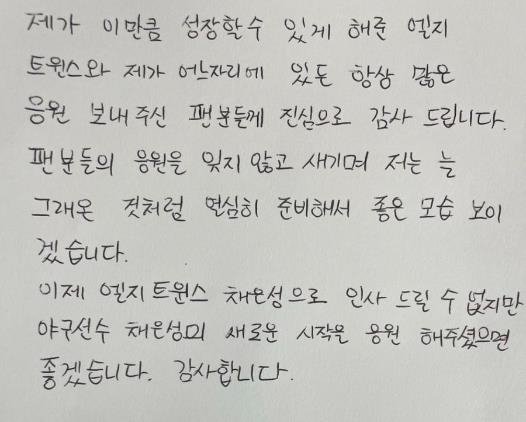 제가 이만큼 성장할수 있게 해준 엘지
트윈스와 제가 어느자리에 있든 항상 많은
응원 보내주신 팬분들께 진심으로 감사 드립니다.
팬분들의 응원을 잊지 않고 새기며 저는 늘
그래온 것처럼 열심히 준비해서 좋은 모습 보이
겠습니다.
이제 엘지트윈스 채은성으로 인사 드릴 수 없지만
야구선수 채은성의 새로운 시작을 응원 해주셨으면
좋겠습니다. 감사합니다.